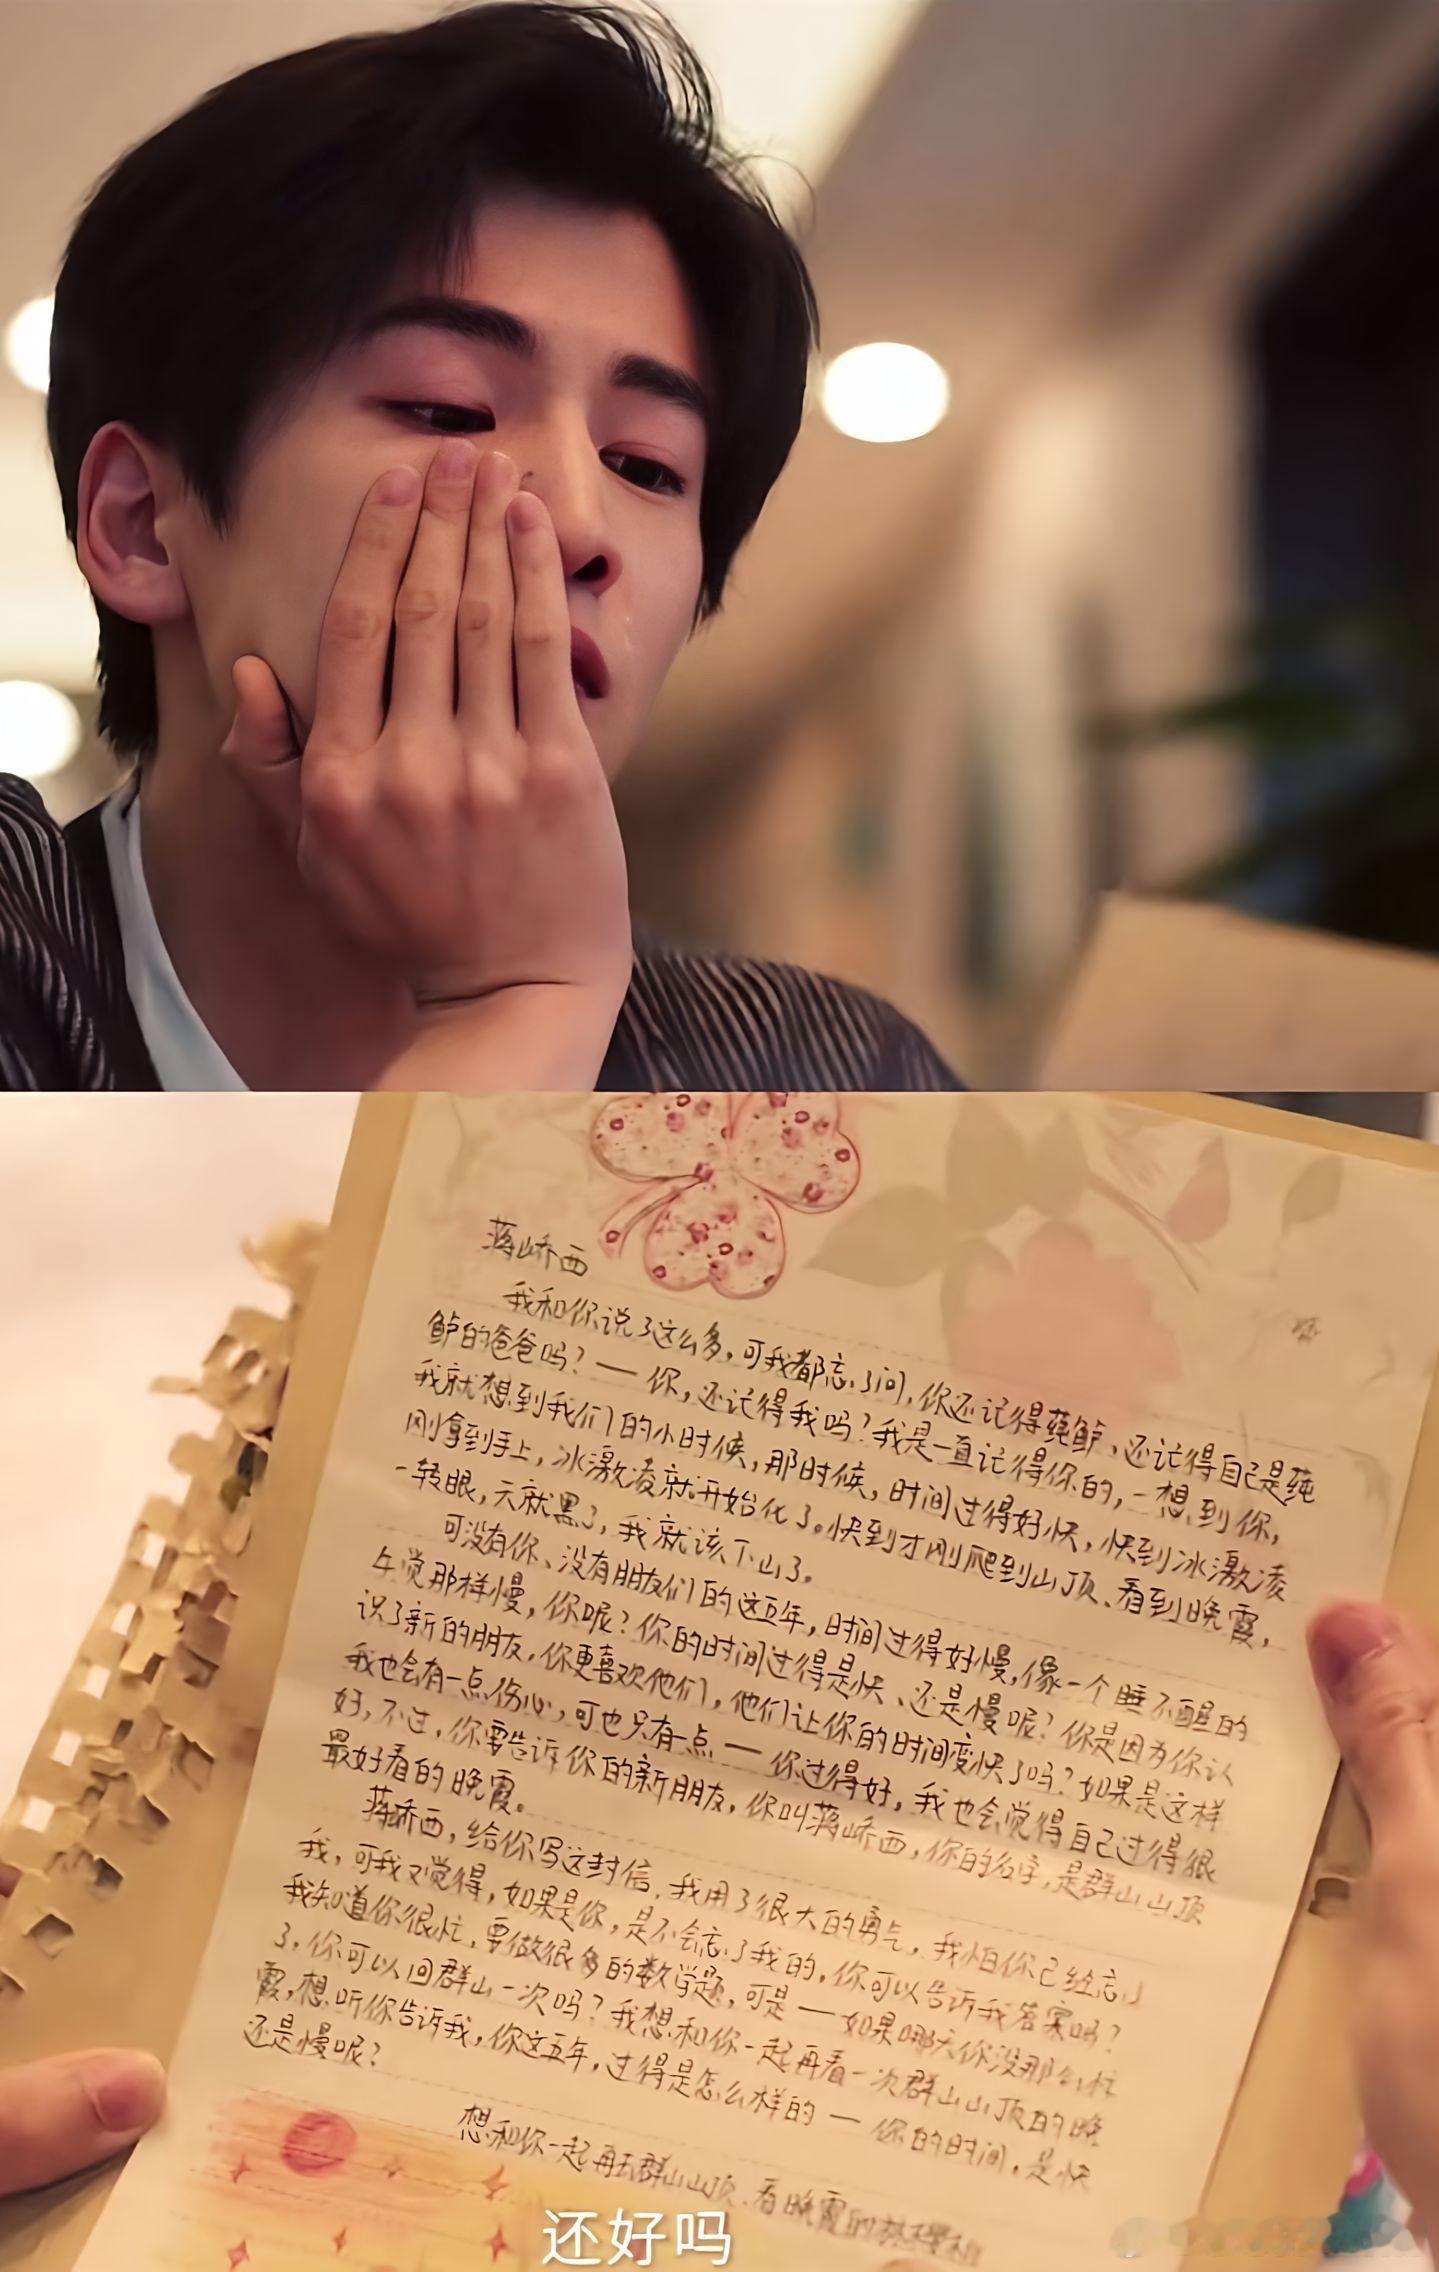 蒋峤西
我和你说了这么多，可我都忘了问，你还记得莼鲈、还记得自己是莼
鲈的爸爸吗？——你，还记得我吗？我是一直记得你的，一想到你，
我就想到我们的小时候，那时候，时间过得好快，快到冰激凌
刚拿到手上，冰激凌就开始化了。快到才刚爬到山顶、看到晚霞，
一转眼，天就黑了，我就该下山了。
可没有你、没有朋友们的这五年，时间过得好慢，像一个睡不醒的
午觉那样慢，你呢？你的时间过得是快、还是慢呢？你是因为你认
识了新的朋友，你更喜欢他们，他们让你的时间变快了吗？如果是这样
我也会有一点伤心，可也只有一点——你过得好，我也会觉得自己过得很
好，不过，你要告诉你的新朋友，你叫蒋峤西，你的名字，是群山山顶
最好看的晚霞。
蒋峤西，给你写这封信，我用了很大的勇气，我怕你已经忘了
我，可我又觉得，如果是你，是不会忘了我的，你可以告诉我答案吗？
我知道你很忙，要做很多的数学题，可是——如果哪天你没那么忙
了，你可以回群山一次吗？我想和你一起再看一次群山山顶的晚
霞，想听你告诉我，你这五年，过得是怎么样的——你的时间，是快
还是慢呢？
想和你一起再去群山山顶、看晚霞的
还好吗